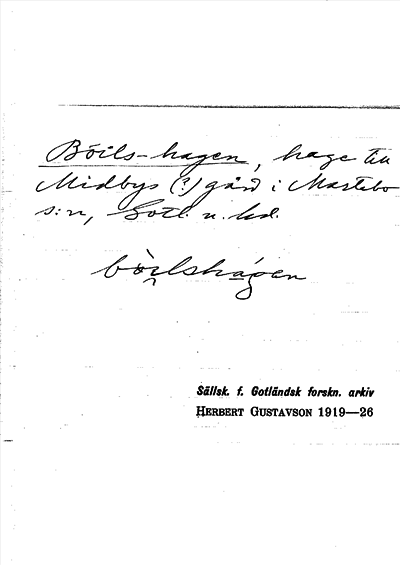 Böils-hagen, hage till
Midbys (?) gård i Martebo
s:n, Gotl. n. hd.
böilshagen
Sällsk. f. Gotländsk forskn. arkiv
HERBERT GUSTAVSON 1919—26